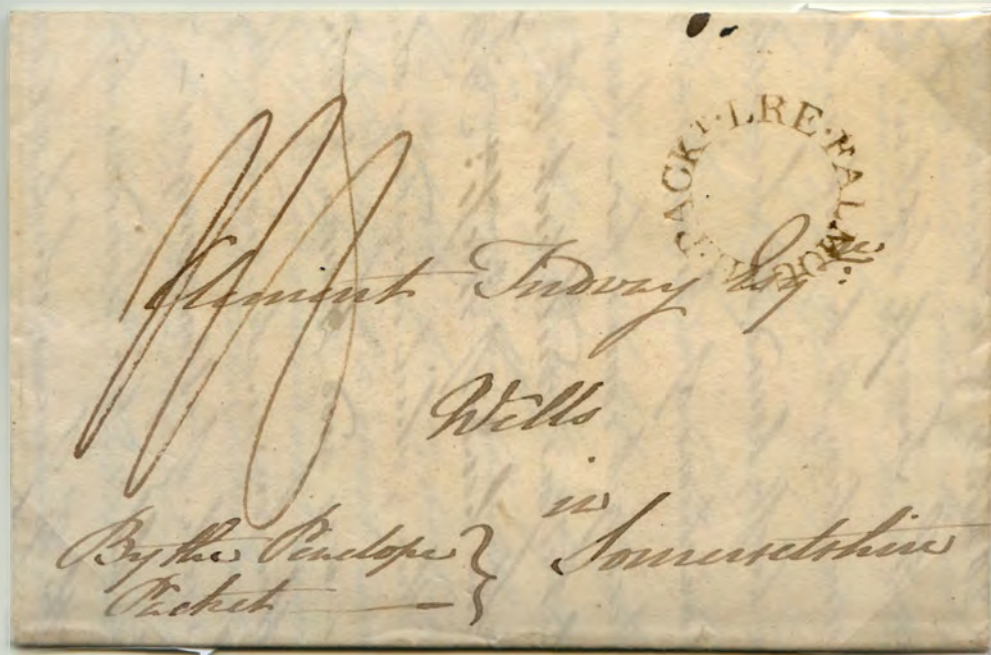 PACKT·LRE·FALMOUTH:
Clement Tudway Esqre
Wells
in
Somersetshire
By the Penelope
Packet